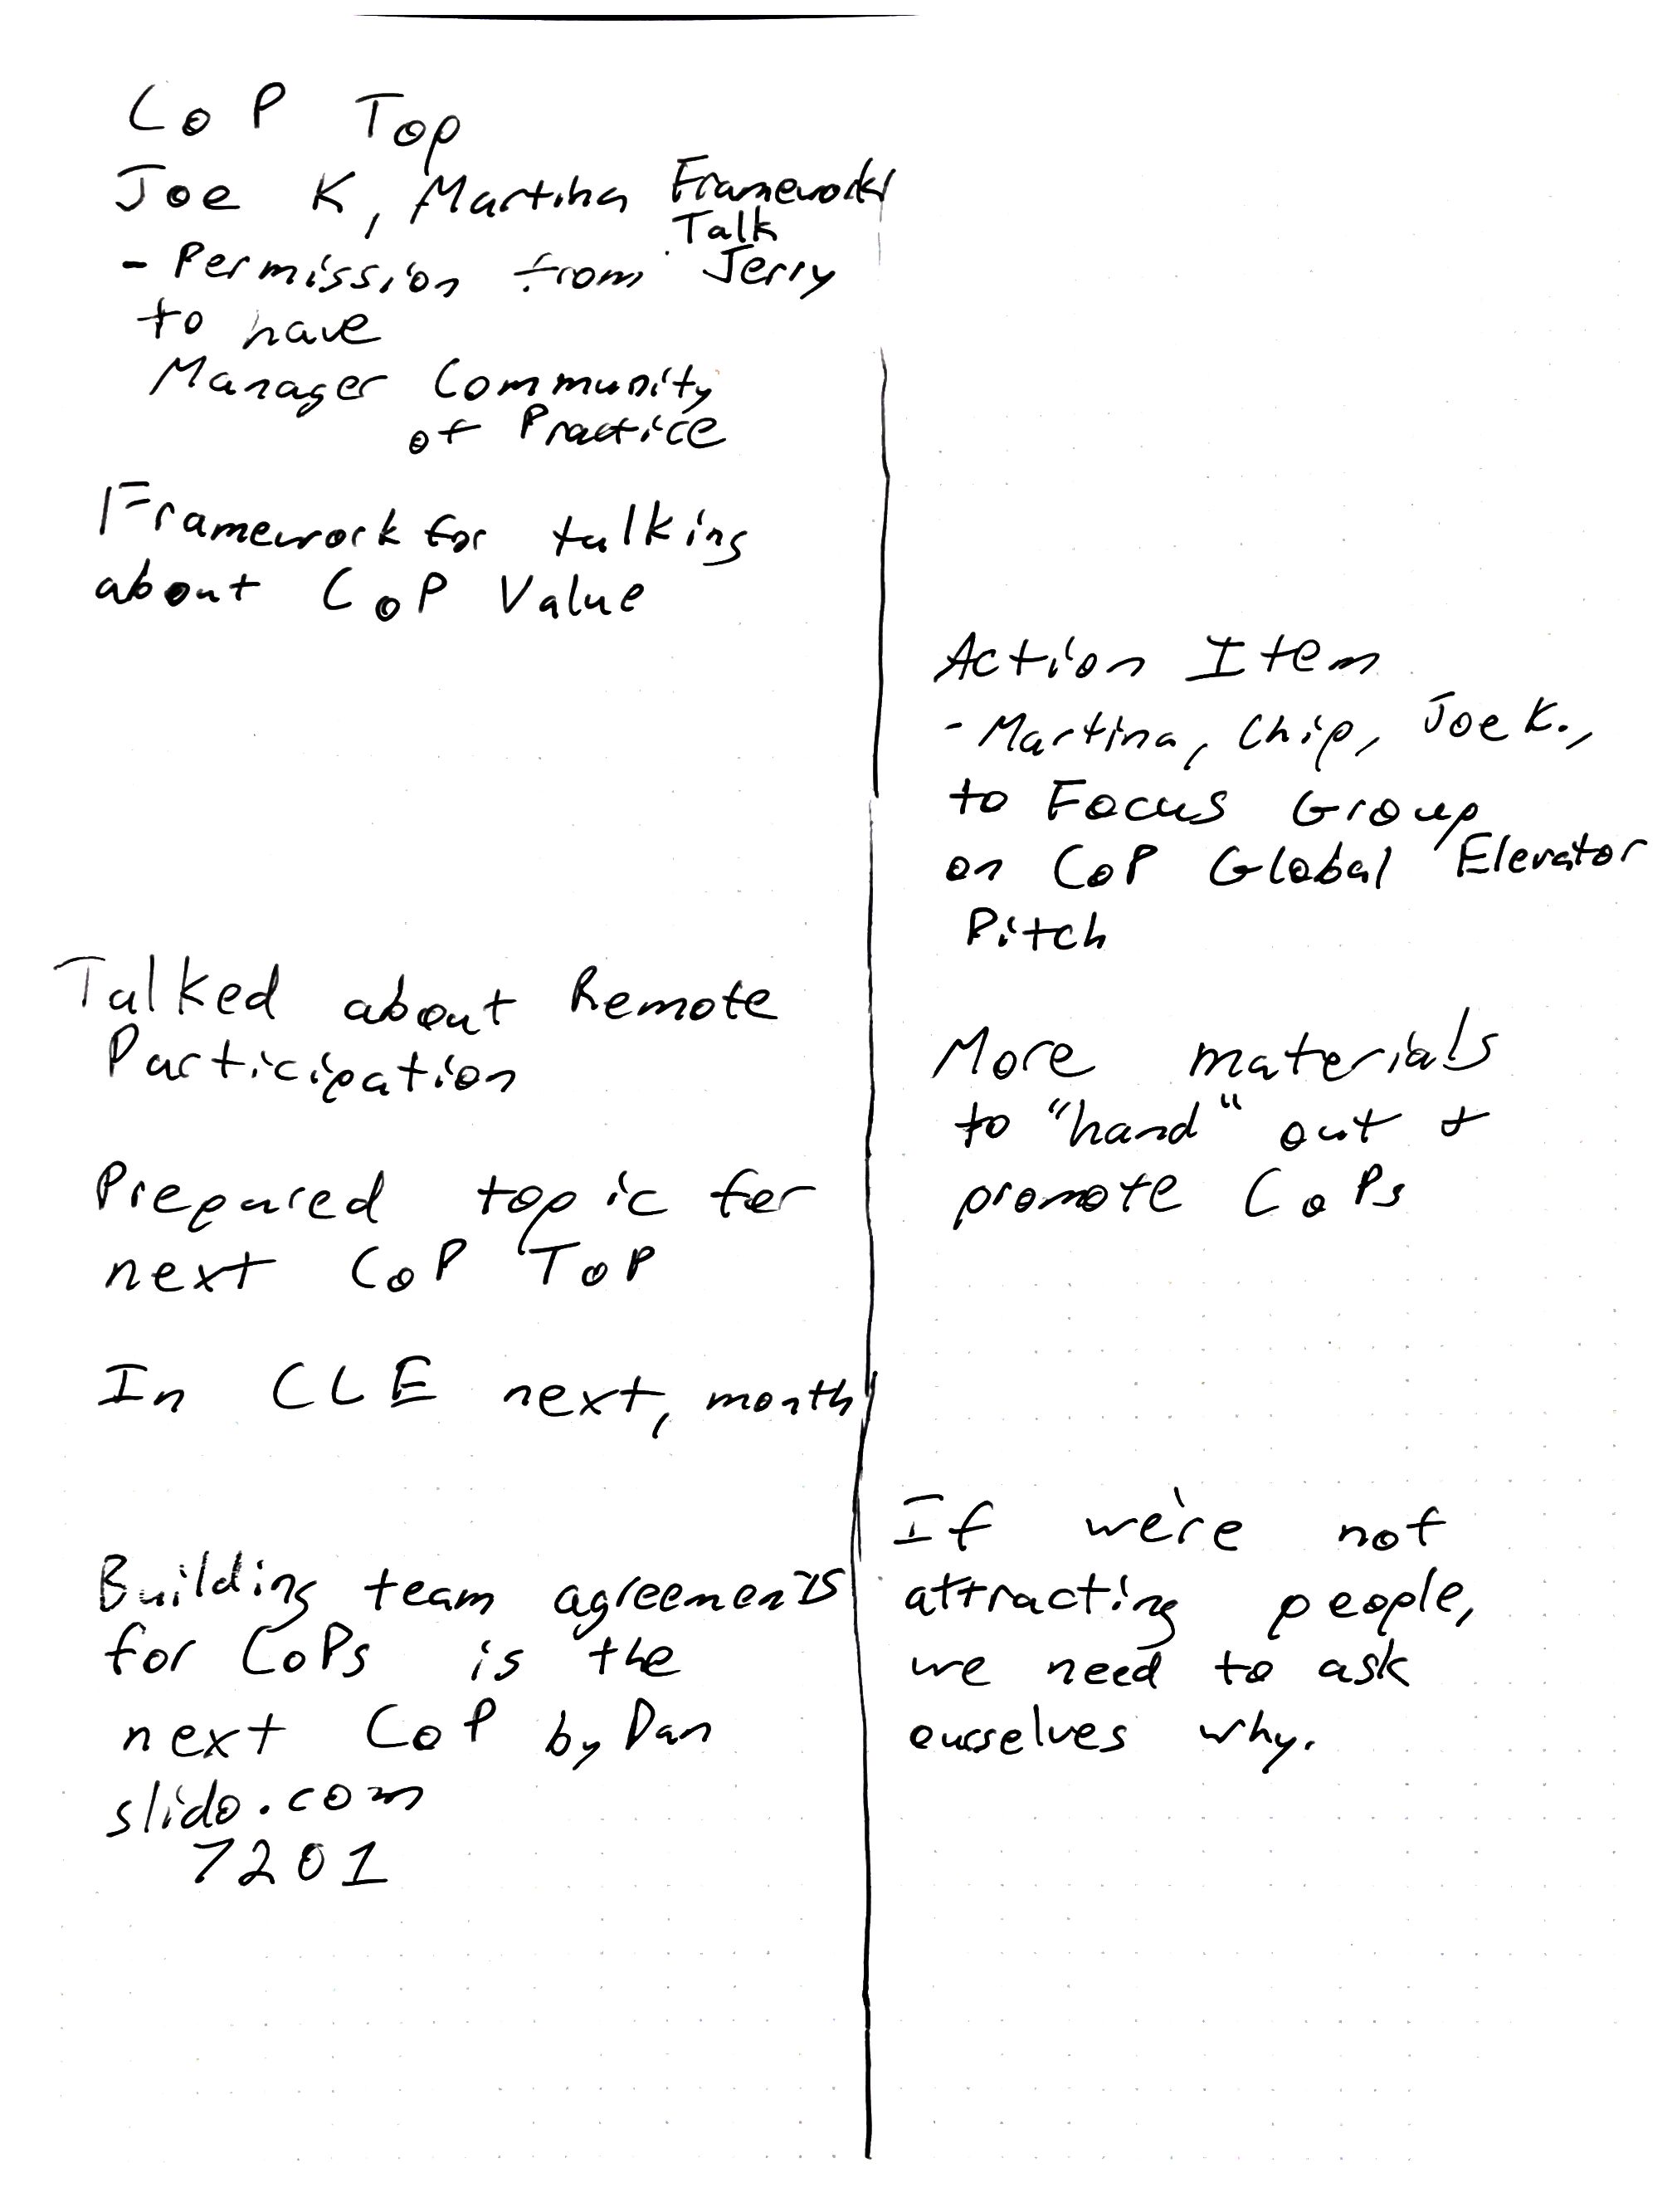 CoP Top
Joe K, Martina Framework
Talk
- Permission from Jerry
to have
Manager Community
of Practice
Framework for talking
about CoP Value
Talked about Remote
Participation
Prepared topic for
next CoP ToP
In CLE next, month
Building team agreements
for CoPs is the
next CoP by Dan
slido.com
7201
Action Item
- Martina, Chip, Joe K.,
to Focus Group
on CoP Global Elevator
Pitch
More materials
to "hand" out &
promote CoPs
If we're not
attracting people,
we need to ask
ourselves why.